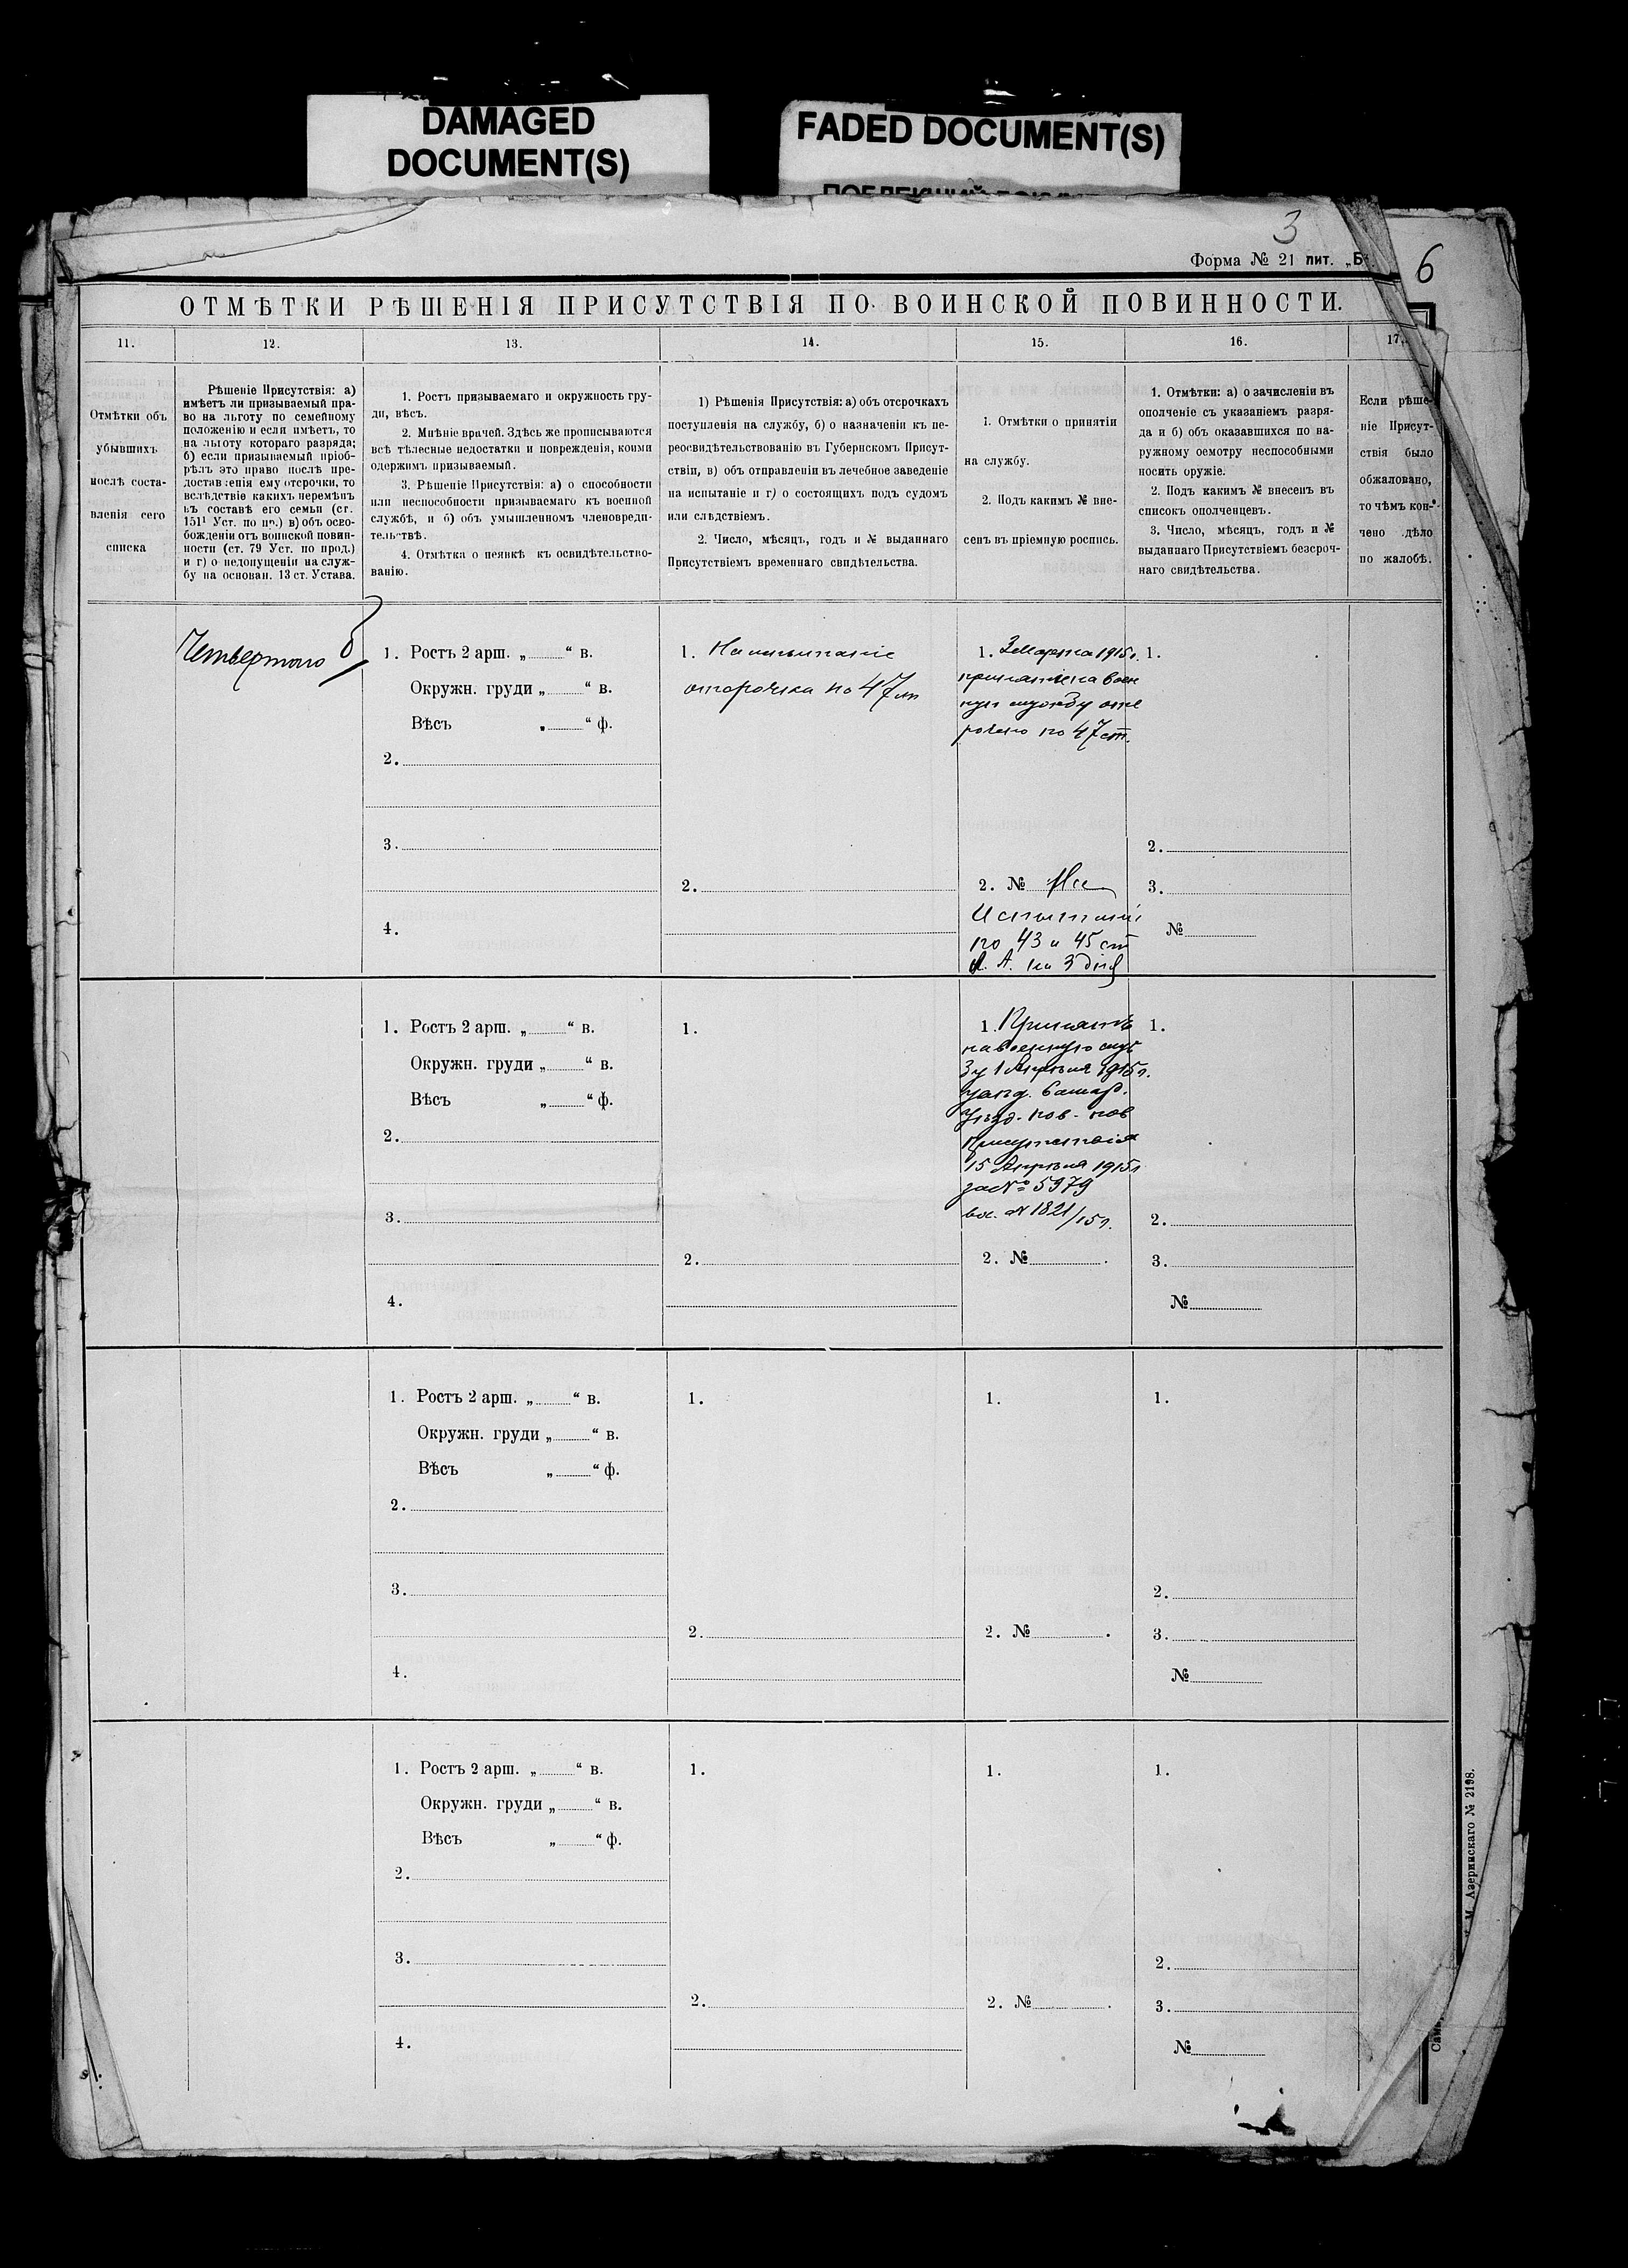 DAMAGED
DOCUMENT(S)
FADED DOCUMENT(S)
3
Форма № 21 лит. „Б“.
6
ОТМѢТКИ РѢШЕНІЯ ПРИСУТСТВІЯ ПО ВОИНСКОЙ ПОВИННОСТИ.
11.
12.
13.
14.
15.
16.
17.
Отмѣтки объ
убывшихъ
послѣ соста-
вленія сего
списка
Рѣшеніе Присутствія: а)
имѣетъ ли призываемый пра-
во на льготу по семейному
положенію и если имѣетъ, то
на льготу котораго разряда;
б) если призываемый пріоб-
рѣлъ это право послѣ пре-
доставленія ему отсрочки, то
вслѣдствіе какихъ перемѣнъ
въ составѣ его семьи (ст.
151¹ Уст. по пр.) в) объ осво-
божденіи отъ воинской повин-
ности (ст. 79 Уст. по прод.)
и г) о недопущеніи на служ-
бу на основан. 13 ст. Устава.
1. Ростъ призываемаго и окружность гру-
ди, вѣсъ.
2. Мнѣніе врачей. Здѣсь же прописываются
всѣ тѣлесные недостатки и поврежденія, коими
одержимъ призываемый.
3. Рѣшеніе Присутствія: а) о способности
или неспособности призываемаго къ военной
службѣ, и б) объ умышленномъ членовреди-
тельствѣ.
4. Отмѣтка о неявкѣ къ освидѣтельство-
ванію.
1) Рѣшенія Присутствія: а) объ отсрочкахъ
поступленія на службу, б) о назначеніи къ пе-
реосвидѣтельствованію въ Губернскомъ Присут-
ствіи, в) объ отправленіи въ лечебное заведеніе
на испытаніе и г) о состоящихъ подъ судомъ
или слѣдствіемъ.
2. Число, мѣсяцъ, годъ и № выданнаго
Присутствіемъ временнаго свидѣтельства.
1. Отмѣтки о принятіи
на службу.
2. Подъ какимъ № вне-
сенъ въ пріемную роспись.
1. Отмѣтки: а) о зачисленіи въ
ополченіе съ указаніемъ разря-
да и б) объ оказавшихся по на-
ружному осмотру неспособными
носить оружіе.
2. Подъ какимъ № внесенъ въ
списокъ ополченцевъ.
3. Число, мѣсяцъ, годъ и №
выданнаго Присутствіемъ безсроч-
наго свидѣтельства.
Если рѣше-
ніе Присут-
ствія было
обжаловано,
то чѣмъ кон-
чено дѣло
по жалобѣ.
Четвертого
1. Ростъ 2 арш. „ “ в.
Окружн. груди „ “ в.
Вѣсъ „ “ ф.
2.
3.
4.
1. На испытаніе
отсрочка по 47 ст
2.
1. 3 Марта 1915 г.
принятіе на воен
ную службу отс
рочено по 47 ст.
2. № На
Испытаніе
по 43 и 45 ст
Л. А. на 3 дня
1.
2.
3.
№
1. Ростъ 2 арш. „ “ в.
Окружн. груди „ “ в.
Вѣсъ „ “ ф.
2.
3.
4.
1.
2.
1. Принятъ
на военную служ
бу 1 Апрѣля 1915 г.
Уѣзд. по в. пов
Присутствія
15 Апрѣля 1915 г
за № 5979
вх. № 1821/15 г.
2. № .
1.
2.
3.
№
1. Ростъ 2 арш. „ “ в.
Окружн. груди „ “ в.
Вѣсъ „ “ ф.
2.
3.
4.
1.
2.
1.
2. № .
1.
2.
3.
№
1. Ростъ 2 арш. „ “ в.
Окружн. груди „ “ в.
Вѣсъ „ “ ф.
2.
3.
4.
1.
2.
1.
2. № .
1.
2.
3.
№
М. Азеринскаго № 2198.